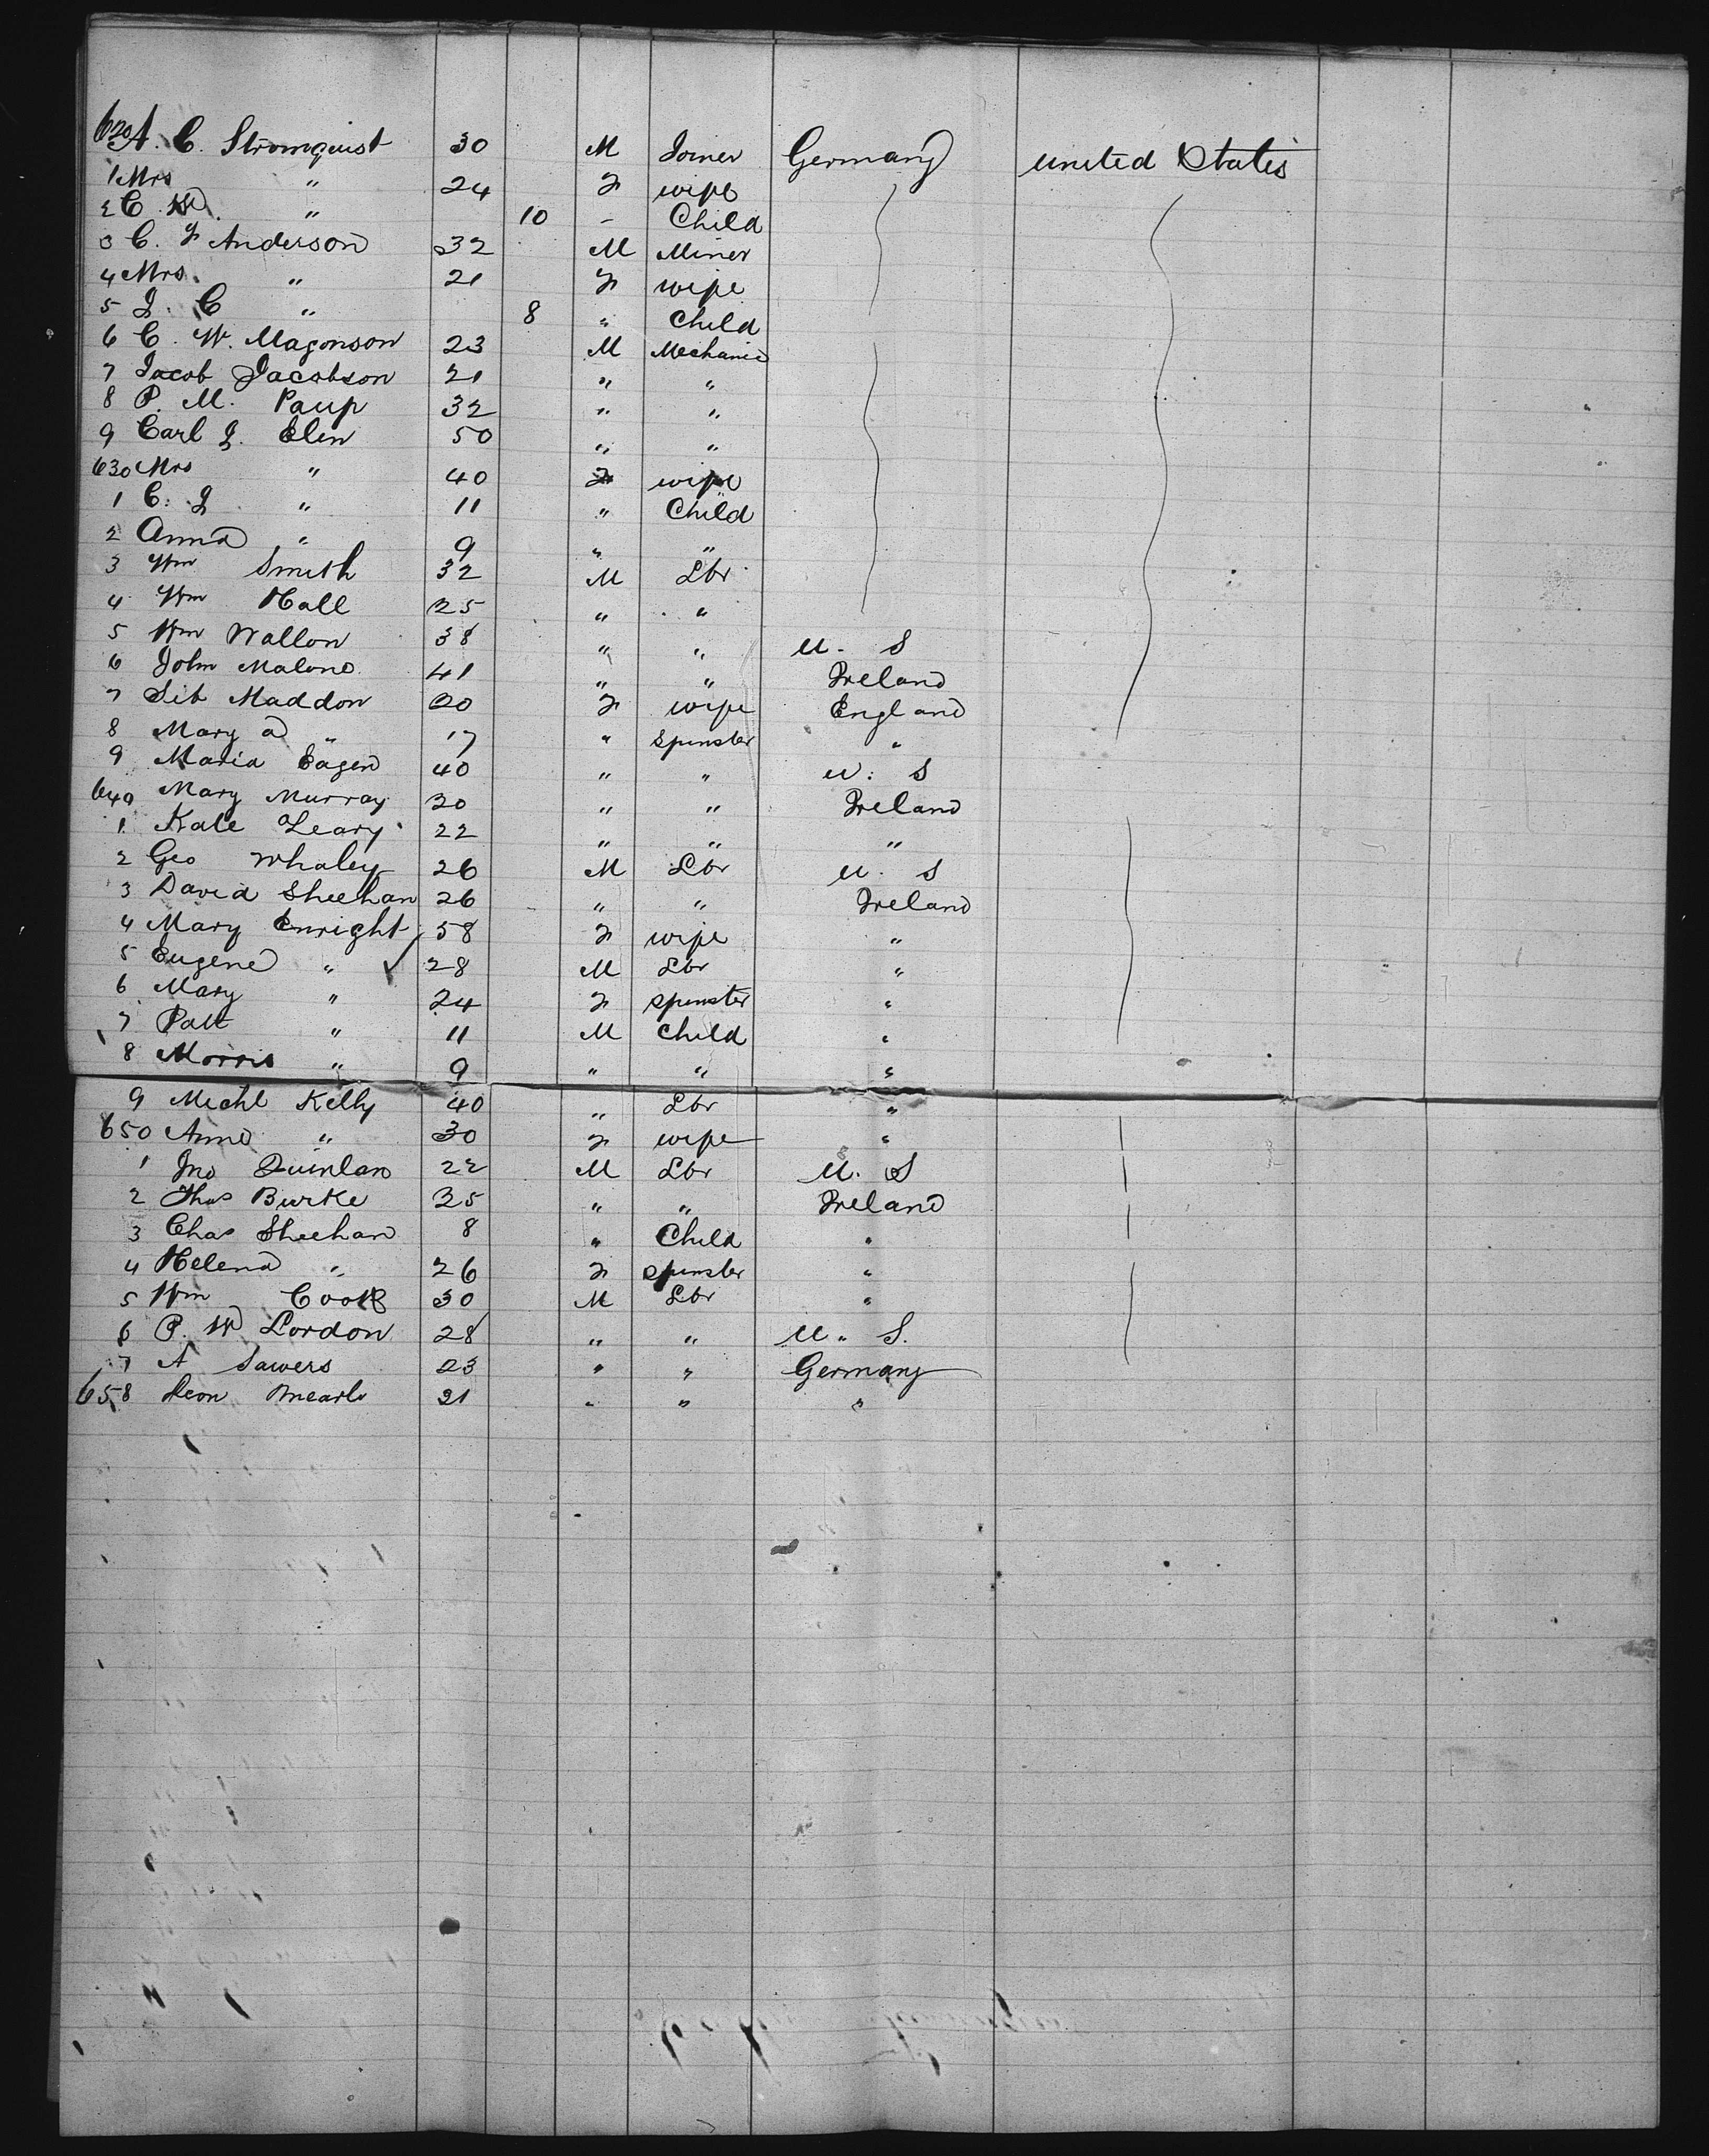 620 A. C. Stromquist 30 M Joiner Germany United States
1 Mrs " 24 F wife
2 C. W. " 10 - Child
3 C. F Anderson 32 M Miner
4 Mrs. " 21 F wife
5 J. C " 8 " Child
6 C. W. Magonson 23 M Mechanic
7 Jacob Jacobson 21 " "
8 P. M. Paup 32 " "
9 Carl J. Elin 50 " "
630 Mrs " 40 F wife
1 C. J " 11 " Child
2 Anna " 9 " "
3 Wm Smith 32 M Lbr
4 Wm Hall 25 " "
5 Wm Wallon 38 " " U. S
6 John Malone 41 " " Ireland
7 Sib Maddon 20 F wife England
8 Mary A " 17 " Spinster "
9 Maria Eagen 40 " " U. S
640 Mary Murray 30 " " Ireland
1 Kate Leary 22 " " "
2 Geo Whaley 26 M Lbr U. S
3 David Sheehan 26 " " Ireland
4 Mary Enright 58 F wife "
5 Eugene " ✓ 28 M Lbr "
6 Mary " 24 F Spinster "
7 Patt " 11 M Child "
8 Morris " 9 " " "
9 Michl Kelly 40 " Lbr "
650 Anne " 30 F wife "
1 Jno Quinlan 22 M Lbr U. S
2 Thos Burke 35 " " Ireland
3 Chas Sheehan 8 " Child "
4 Helena " 26 F Spinster "
5 Wm Cook 30 M Lbr "
6 P. W Lordon 28 " " U. S.
7 A Sawers 23 " " Germany
658 Leon 21 " " "